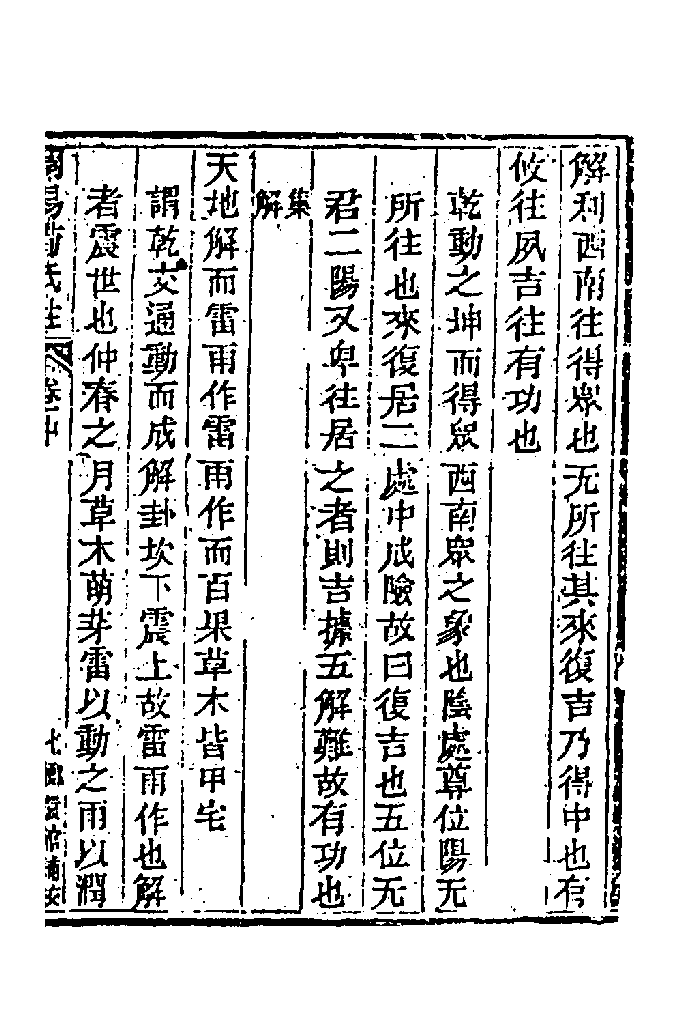 解利西南往得眾也无所往其來復吉乃得中也有
攸往夙吉往有功也
乾動之坤而得眾西南眾之象也陰處尊位陽无
所往也來復居二處中成險故曰復吉也五位无
君二陽又卑往居之者則吉據五解難故有功也
集解
天地解而雷雨作雷雨作而百果草木皆甲宅
謂乾交通動而成解卦坎下震上故雷雨作也解
者震世也仲春之月草木萌芽雷以動之雨以潤
周易荀氏注 卷中